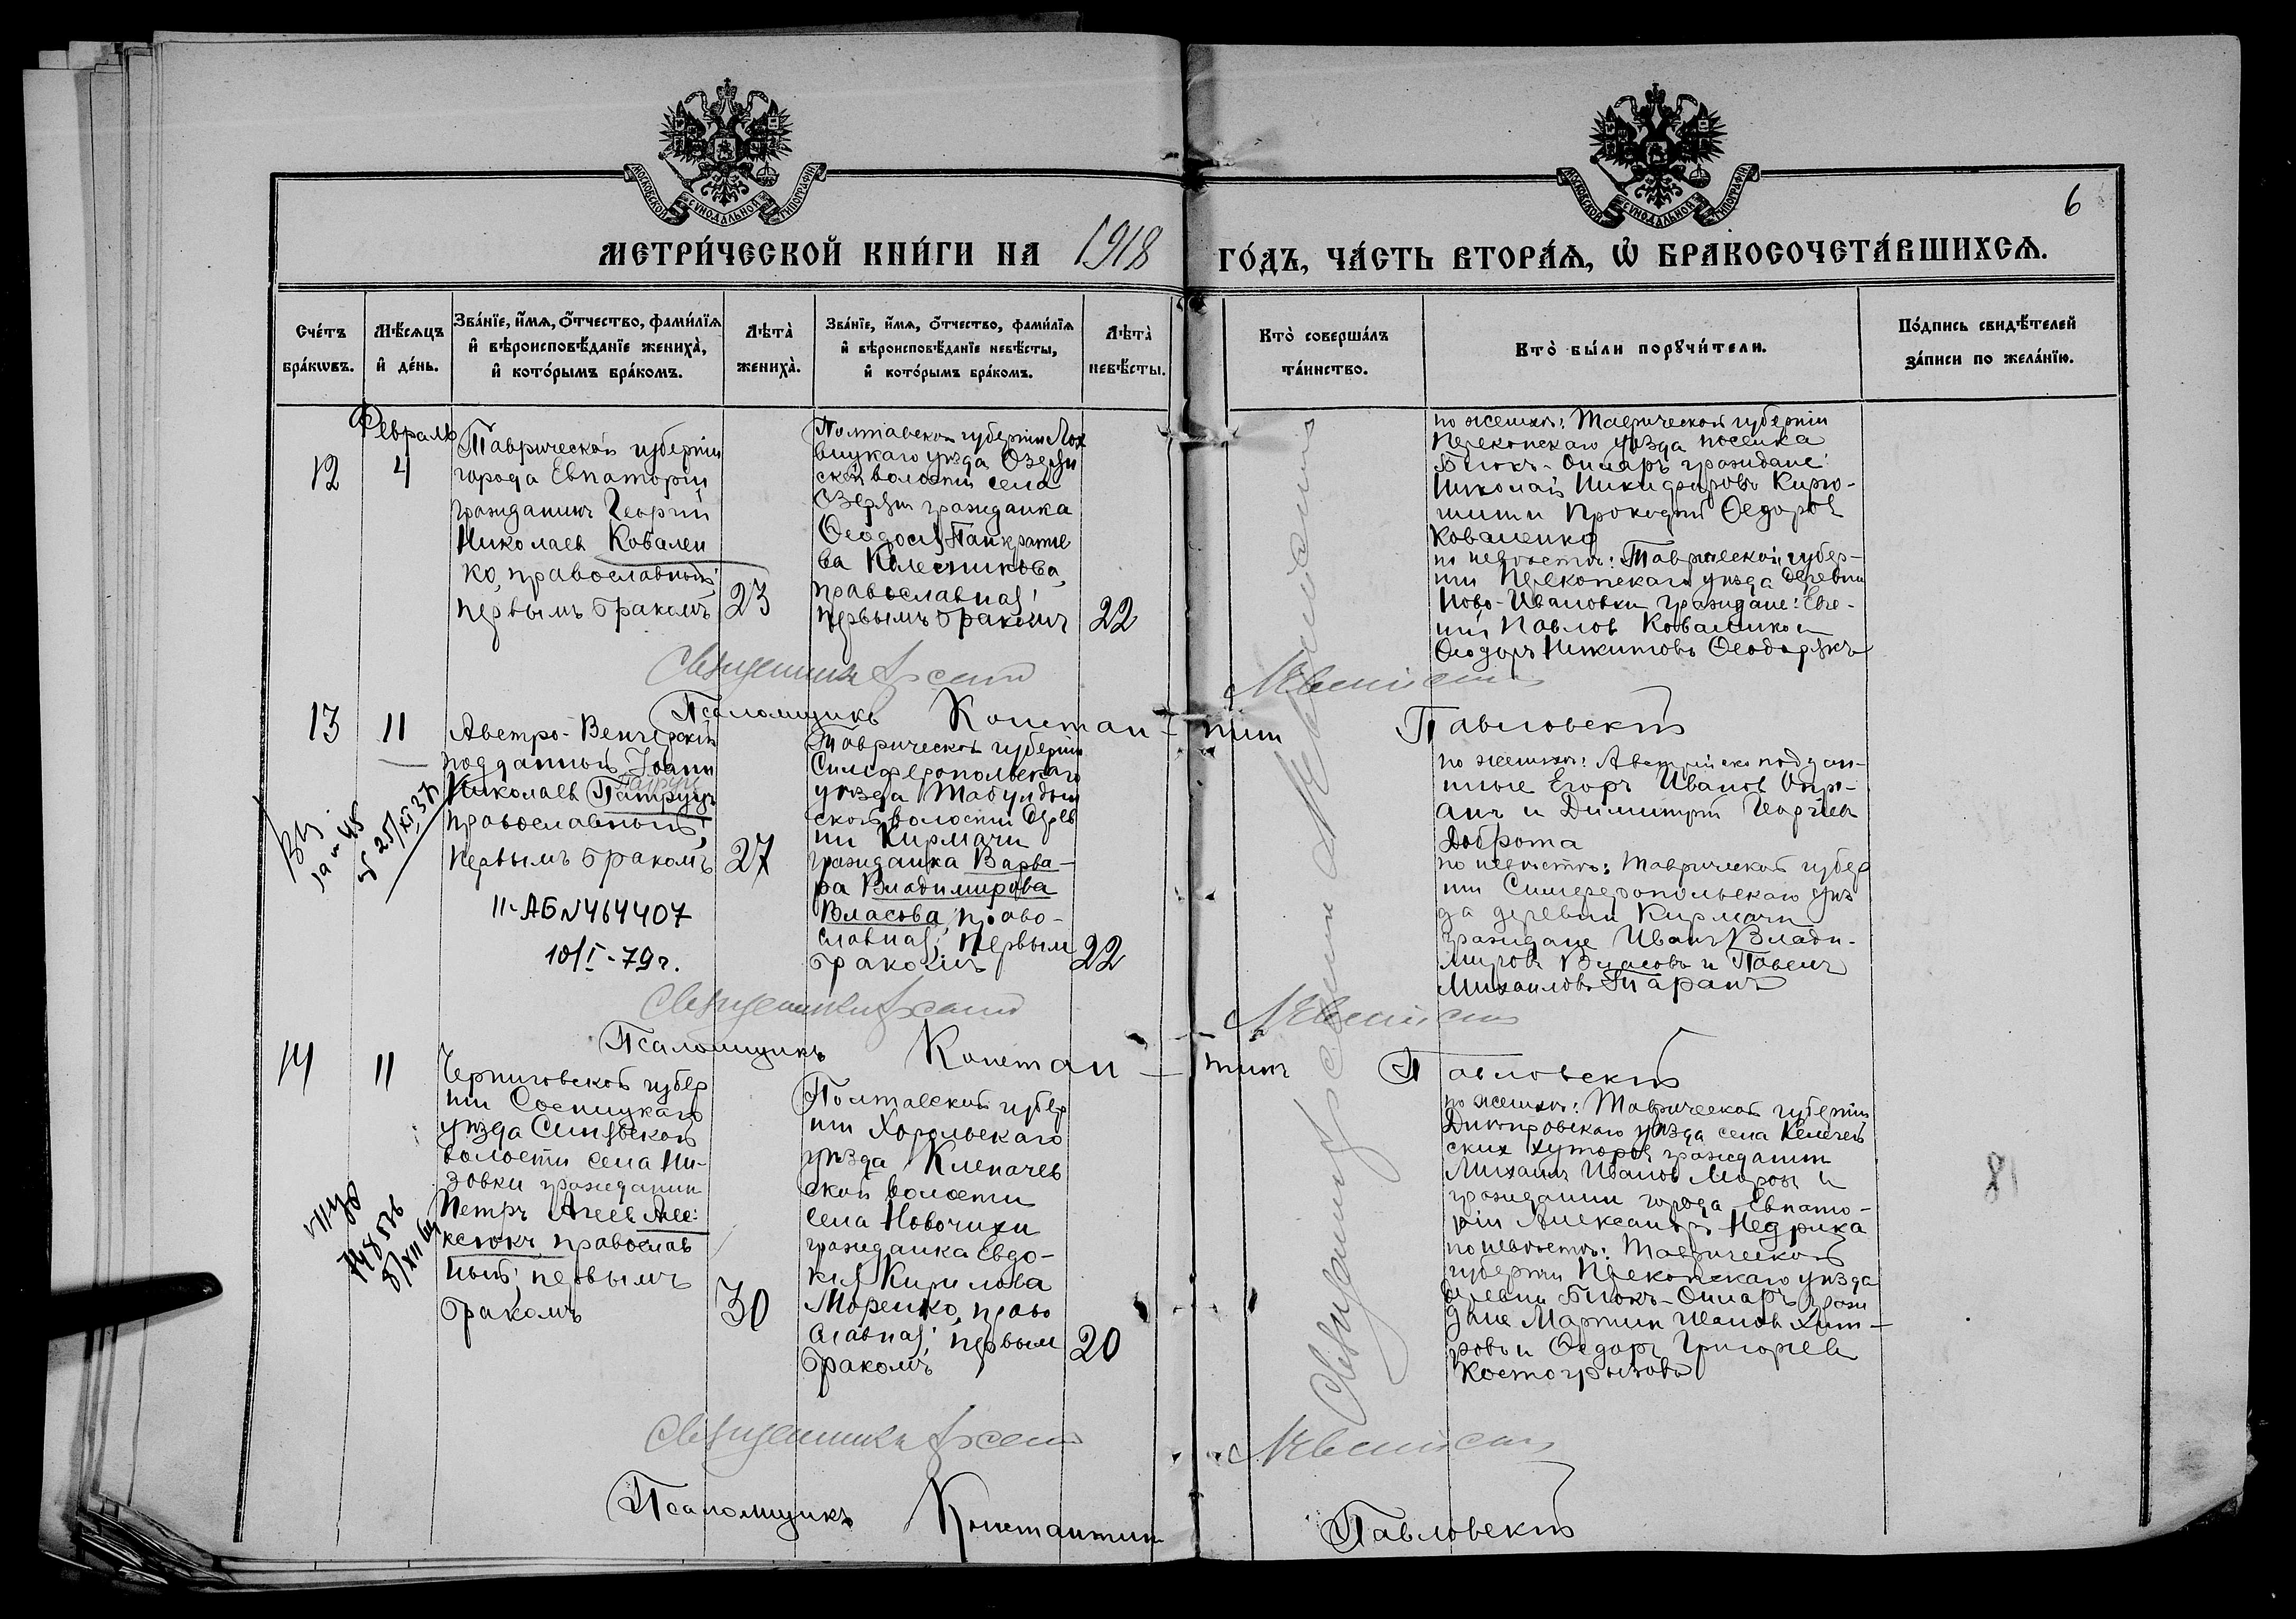 МОСКОВСКОЙ СѴНОДАЛЬНОЙ ТИПОГРАФІИ
МОСКОВСКОЙ СѴНОДАЛЬНОЙ ТИПОГРАФІИ
6
МЕТРИ́ЧЕСКОЙ КНИ́ГИ НА 1918 ГО́ДЪ, ЧА́СТЬ ВТОРА́Ѧ, Ѡ҆ БРАКОСОЧЕТА́ВШИХСѦ.
Сче́тъ бра́кѡвъ.
Мѣ́сѧцъ и҆ де́нь.
Зва́нїе, и҆́мѧ, ѻ҆́тчество, фами́лїѧ
и҆ вѣроисповѣ́данїе жениха̀,
и҆ кото́рымъ бра́комъ.
Лѣта̀ жениха̀.
Зва́нїе, и҆́мѧ, ѻ҆́тчество, фами́лїѧ
и҆ вѣроисповѣ́данїе невѣ́сты,
и҆ кото́рымъ бра́комъ.
Лѣта̀ невѣ́сты.
Кто̀ соверша́лъ
та́инство.
Кто̀ бы́ли порꙋчи́тели.
По́дпись свидѣ́телей
за́писи по жела́нїю.
Февраль
12
4
Таврической губерніи
города Евпаторіи
гражданинъ Георгій
Николаевъ Ковален
ко, православный;
первымъ бракомъ
23
Полтавской губерніи Лох
вицкаго уѣзда Озерян
ской волости села
Озерян гражданка
Ѳеодосія Панкратіе
ва Колесникова,
православная;
первымъ бракомъ
22
по женихѣ: Таврической губерніи
Перекопскаго уѣзда поселка
Біюкъ-Онларъ граждане:
Николай Никифоровъ
Прокофій Ѳедоровъ
Коваленко
по невѣстѣ: Таврической губер-
ніи Перекопскаго уѣзда деревни
Ново-Ивановки граждане: Евге-
ній Павловъ Коваленко и
Ѳеодоръ Никитовъ
Священникъ
Псаломщикъ Констан-тинъ Павловскій
13
11
Австро-Венгерскій
подданный Іоаннъ
Николаевъ Патруцъ
православный;
первымъ бракомъ
27
II-АБ N 464407
10/I-79г.
Таврической губерніи
Симферопольскаго
уѣзда Табулдын
ской волости дерев
ни Кирмачи
гражданка Варва-
ра Владимирова
Власова, право-
славная; первым
бракомъ
22
по женихѣ: Австрійско поддан-
ные Егоръ Ивановъ
и Димитрій Георгіевъ
Доброта
по невѣстѣ: Таврической губер
ніи Симферопольскаго уѣз
да деревни Кирмачи
граждане Иванъ Влади-
міровъ Власовъ и Павелъ
Михаиловъ Таранъ
Священникъ
Псаломщикъ Констан-тинъ Павловскій
14
11
Черниговской губер
ніи Сосницкаго
уѣзда Синявской
волости села Ни-
зовки гражданинъ
Петръ Агеевъ Але-
ксюкъ, православ
ный; первымъ
бракомъ
30
Полтавской губер
ніи Хорольскаго
уѣзда Клепачев
ской волости
села Новочихи
гражданка Евдо-
кія Кирилова
Моренко, право
славная; первым
бракомъ
20
по женихѣ: Таврической губерніи
Днѣпровскаго уѣзда села Келегей
скихъ хуторовъ гражданинъ
Михаилъ Ивановъ Морозъ и
гражданинъ города Евпато-
ріи Александръ Недрика
по невѣстѣ: Таврической
губерніи Перекопскаго уѣзда
деревни Біюкъ-Онларъ граж
дане Мартинъ Ивановъ Хит-
ровъ и Ѳедоръ Григорьевъ
Костогрызовъ
Священникъ
Псаломщикъ Константинъ Павловскій